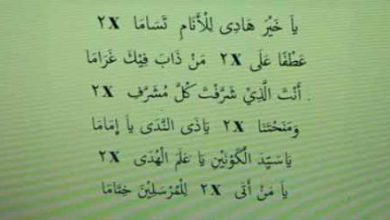 ياَ خَيْرَ هَادِى لِلْأَنَامِ تَسَامَا ٢X
عَطْفًا عَلَى ٢X مَنْ ذَابَ فِيْكَ غَرَامَا
أَنْتَ الَّذِيْ شَرَّفْتَ كُلَّ مُشَرَّفٍ ٢X
وَمَنَحْتَنَا ٢X يَاذَى النَّدَى ياَ إِمَامَا
يَاسَيِّدَ الْكَوْنَيْنِ يَا عَلَمَ الْهُدَى ٢X
ياَ مَنْ أَتَى ٢X لِلْمُرْسَلِيْنَ خِتَامَا